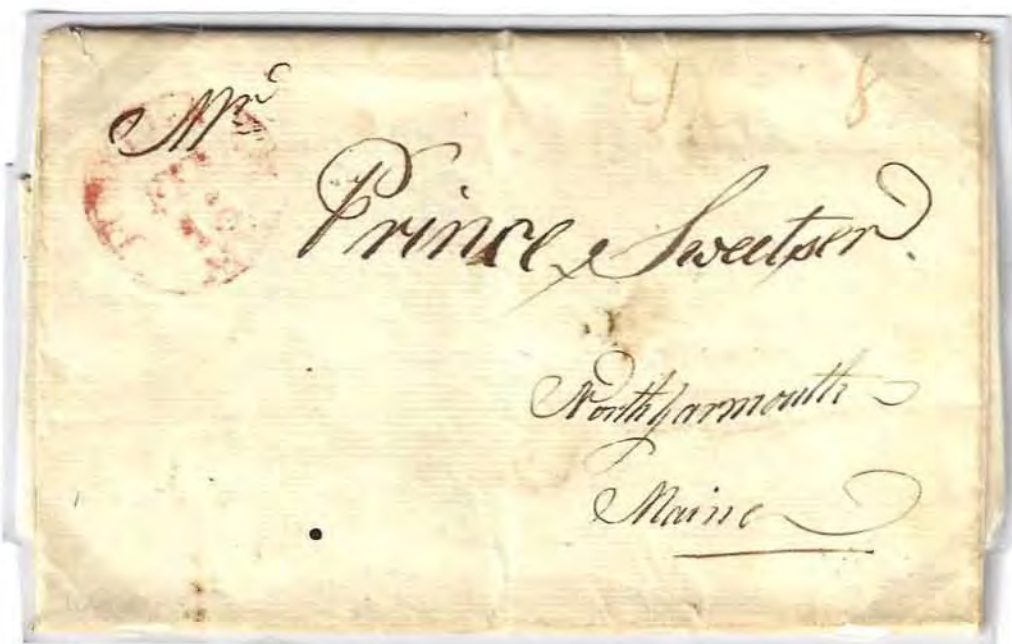 Mr
Prince Sweetser.
North Yarmouth
Maine